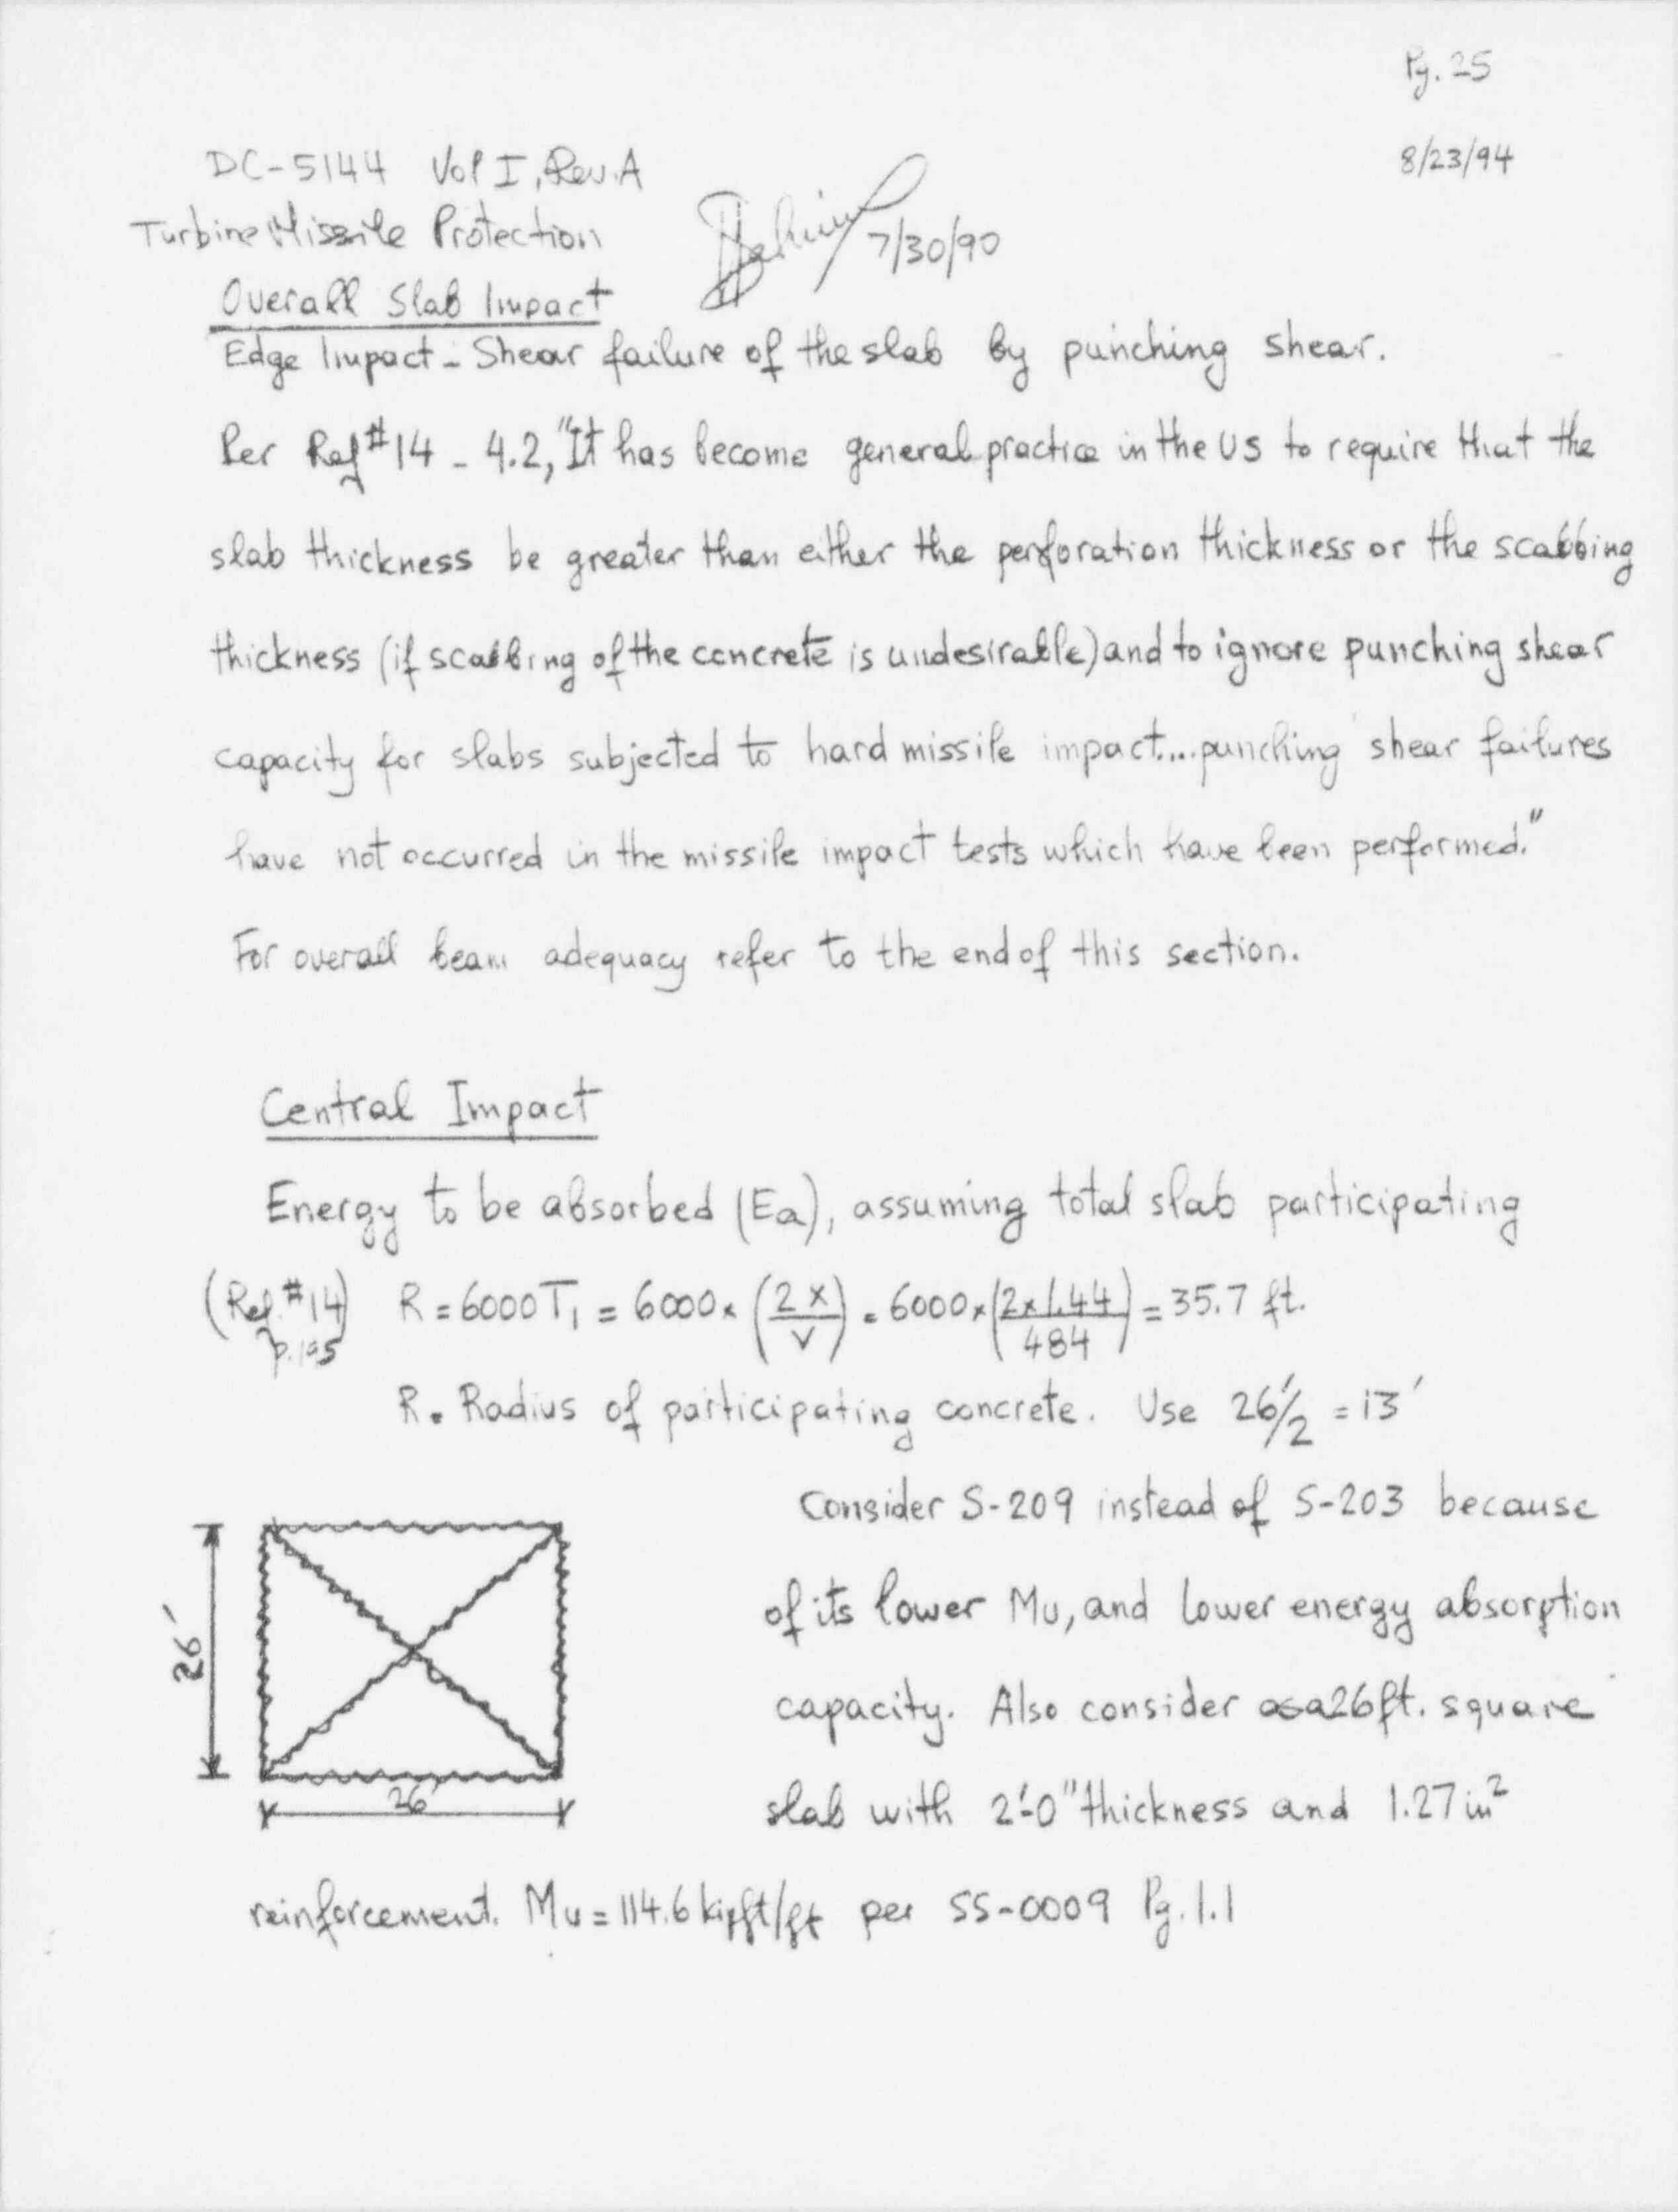 Pg. 25
8/23/94
DC-5144 Vol I, Rev. A
Turbine Missile Protection
7/30/90
Overall Slab Impact
Edge Impact - Shear failure of the slab by punching shear.
Per Ref #14 - 4.2, "It has become general practice in the US to require that the
slab thickness be greater than either the perforation thickness or the scabbing
thickness (if scabbing of the concrete is undesirable) and to ignore punching shear
capacity for slabs subjected to hard missile impact....punching shear failures
have not occurred in the missile impact tests which have been performed."
For overall beam adequacy refer to the end of this section.
Central Impact
Energy to be absorbed (Ea), assuming total slab participating
(Ref. #14) R = 6000 T₁ = 6000 x (2x/v) = 6000 x (2x1.44/484) = 35.7 ft.
p.105
R = Radius of participating concrete. Use 26'/2 = 13'
Consider S-209 instead of S-203 because
of its lower Mu, and lower energy absorption
capacity. Also consider as a 26 ft. square
slab with 2'-0" thickness and 1.27 in²
26'
26'
reinforcement. Mu = 114.6 kipft/ft per SS-0009 Pg. 1.1